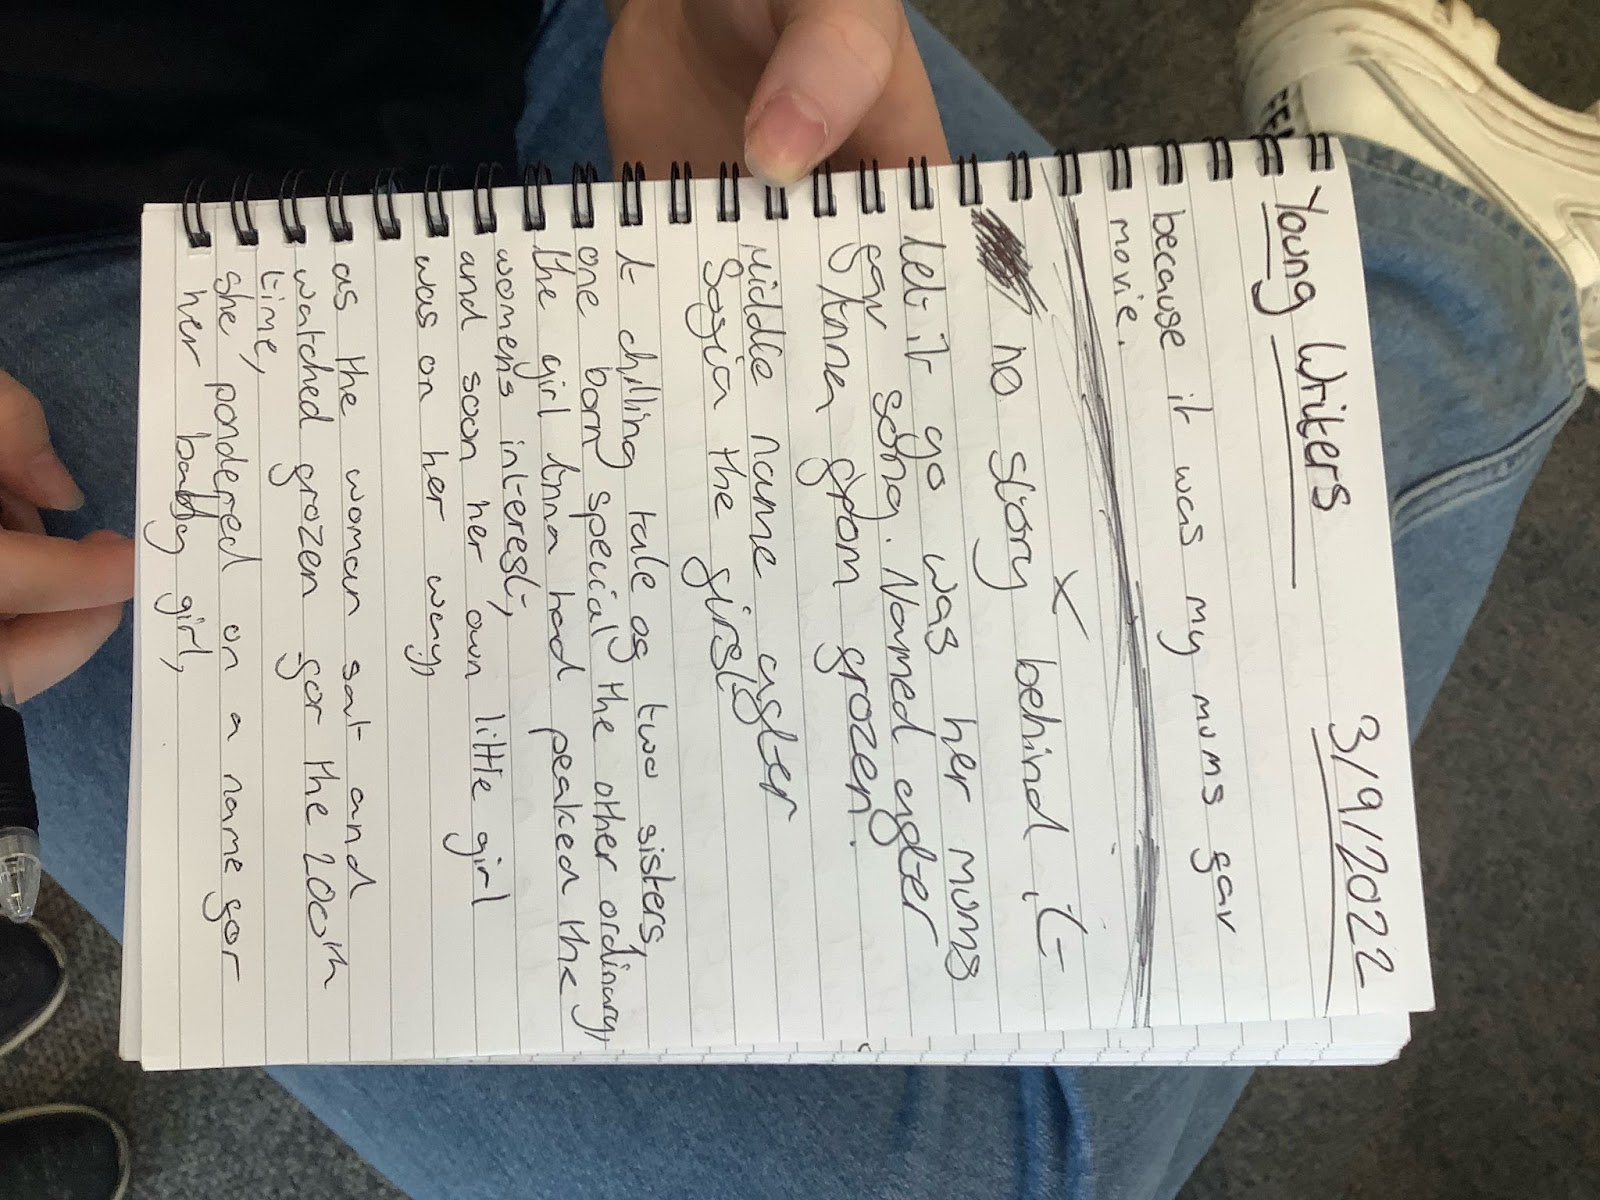 Young Writers 3/9/2022
because it was my mums fav
movie.
x
no story behind it
Let it go was her mums
fav song. Named after
Anna from frozen.
Middle name after
Sofia the first
A chilling tale of two sisters,
one born special the other ordinary,
the girl Anna had peaked the
women's interest,
and soon her own little girl
was on her way,
as the woman sat and
watched frozen for the 200th
time,
she pondered on a name for
her baby girl,